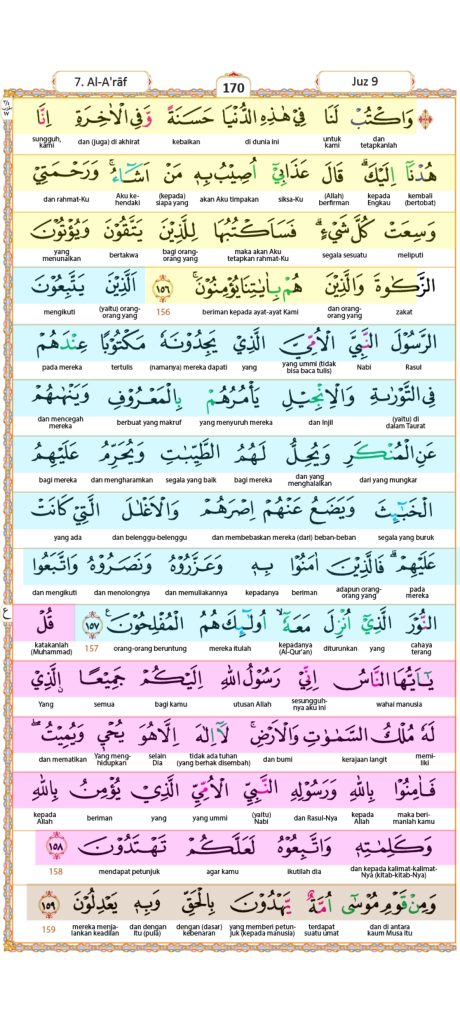 7. Al-A'rāf
170
Juz 9
وَاكْتُبْ لَنَا فِيْ هٰذِهِ الدُّنْيَا حَسَنَةً وَّفِى الْاٰخِرَةِ اِنَّا
dan tetapkanlah untuk kami di dunia ini kebaikan dan (juga) di akhirat sungguh, kami
هُدْنَآ اِلَيْكَۗ قَالَ عَذَابِيْٓ اُصِيْبُ بِهٖ مَنْ اَشَاۤءُۚ وَرَحْمَتِيْ
kembali (bertobat) kepada Engkau (Allah) berfirman siksa-Ku akan Aku timpakan (kepada) siapa yang Aku ke-hendaki dan rahmat-Ku
وَسِعَتْ كُلَّ شَيْءٍۗ فَسَاَكْتُبُهَا لِلَّذِيْنَ يَتَّقُوْنَ وَيُؤْتُوْنَ
meliputi segala sesuatu maka akan Aku tetapkan rahmat-Ku bagi orang-orang yang bertakwa yang menunaikan
الزَّكٰوةَ وَالَّذِيْنَ هُمْ بِاٰيٰتِنَا يُؤْمِنُوْنَۚ ١٥٦ اَلَّذِيْنَ يَتَّبِعُوْنَ
zakat dan orang-orang yang beriman kepada ayat-ayat Kami 156 (yaitu) orang-orang yang mengikuti
الرَّسُوْلَ النَّبِيَّ الْاُمِّيَّ الَّذِيْ يَجِدُوْنَهٗ مَكْتُوْبًا عِنْدَهُمْ
Rasul Nabi yang ummi (tidak bisa baca tulis) yang (namanya) mereka dapati tertulis pada mereka
فِى التَّوْرٰىةِ وَالْاِنْجِيْلِ يَأْمُرُهُمْ بِالْمَعْرُوْفِ وَيَنْهٰىهُمْ
(yaitu) di dalam Taurat dan Injil yang menyuruh mereka berbuat yang makruf dan mencegah mereka
عَنِ الْمُنْكَرِ وَيُحِلُّ لَهُمُ الطَّيِّبٰتِ وَيُحَرِّمُ عَلَيْهِمُ
dari yang mungkar dan yang menghalalkan bagi mereka segala yang baik dan mengharamkan bagi mereka
الْخَبٰۤىِٕثَ وَيَضَعُ عَنْهُمْ اِصْرَهُمْ وَالْاَغْلٰلَ الَّتِيْ كَانَتْ
segala yang buruk dan membebaskan mereka (dari) beban-beban dan belenggu-belenggu yang ada
عَلَيْهِمْۗ فَالَّذِيْنَ اٰمَنُوْا بِهٖ وَعَزَّرُوْهُ وَنَصَرُوْهُ وَاتَّبَعُوا
pada mereka adapun orang-orang yang beriman kepadanya dan memuliakannya dan menolongnya dan mengikuti
النُّوْرَ الَّذِيْٓ اُنْزِلَ مَعَهٗٓۙ اُولٰۤىِٕكَ هُمُ الْمُفْلِحُوْنَࣖ ١٥٧ قُلْ
cahaya terang yang diturunkan kepadanya (Al-Qur'an) mereka itulah orang-orang beruntung 157 katakanlah (Muhammad)
يٰٓاَيُّهَا النَّاسُ اِنِّيْ رَسُوْلُ اللّٰهِ اِلَيْكُمْ جَمِيْعًا ۨالَّذِيْ
wahai manusia sesungguh-nya aku ini utusan Allah bagi kamu semua Yang
لَهٗ مُلْكُ السَّمٰوٰتِ وَالْاَرْضِۚ لَآ اِلٰهَ اِلَّا هُوَ يُحْيٖ وَيُمِيْتُۖ
memi-liki kerajaan langit dan bumi tidak ada tuhan (yang berhak disembah) selain Dia Yang meng-hidupkan dan mematikan
فَاٰمِنُوْا بِاللّٰهِ وَرَسُوْلِهِ النَّبِيِّ الْاُمِّيِّ الَّذِيْ يُؤْمِنُ بِاللّٰهِ
maka beri-manlah kamu kepada Allah dan Rasul-Nya (yaitu) Nabi yang ummi yang beriman kepada Allah
وَكَلِمٰتِهٖ وَاتَّبِعُوْهُ لَعَلَّكُمْ تَهْتَدُوْنَ ١٥٨
dan kepada kalimat-kalimat-Nya (kitab-kitab-Nya) ikutilah dia agar kamu mendapat petunjuk 158
وَمِنْ قَوْمِ مُوْسٰٓى اُمَّةٌ يَّهْدُوْنَ بِالْحَقِّ وَبِهٖ يَعْدِلُوْنَ ١٥٩
dan di antara kaum Musa itu terdapat suatu umat yang memberi petun-juk (kepada manusia) dengan (dasar) kebenaran dan dengan itu (pula) mereka menja-lankan keadilan 159
ع